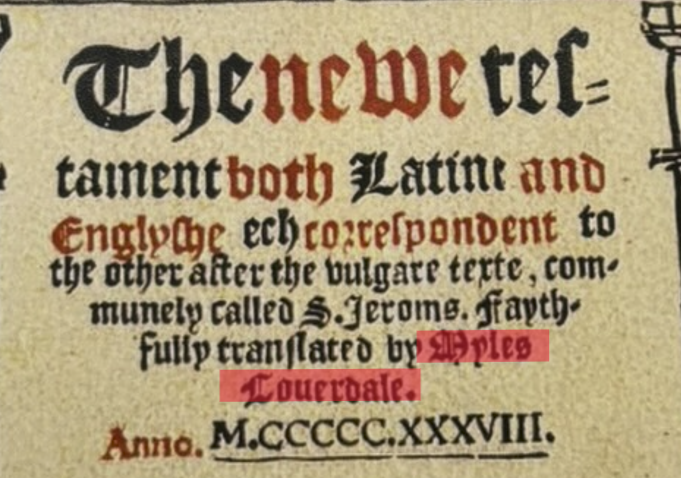 The newe tes=
tament both Latine and
Englyshe ech correspondent to
the other after the vulgare texte, com-
munely called S. Jeroms. Fayth-
fully translated by Myles
Couerdale.
Anno. M.CCCCC.XXXVIII.